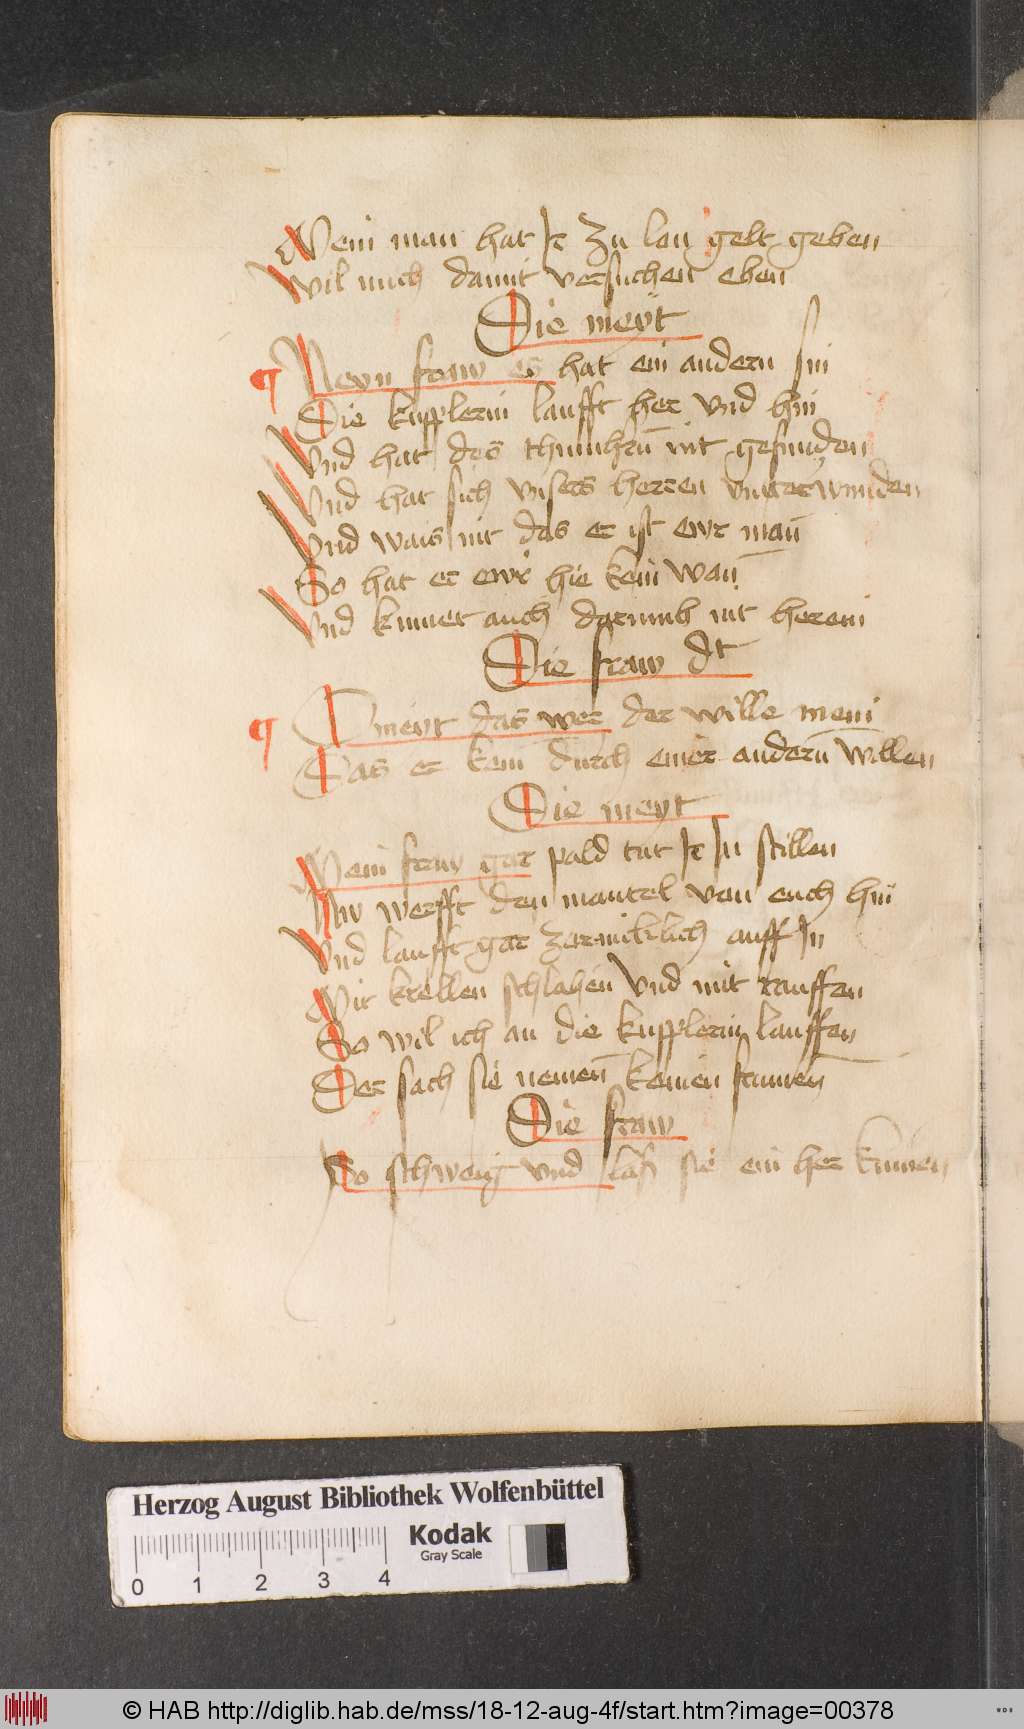 Mein man hat Ir zu lon gelt geben
Wil mich damit versuchen eben
Die meyt
Neyn fraw es hat ein andern sin
Die kupplerin laufft her vnd hin
Vnd hat des thumhern nit gefunden
Vnd hat sich vnsers herren vnterwunden
Vnd wais nit das er ist ewr man
So hat er ewr hie kein wan
Vnd kumet auch darumb nit herein
Die fraw dt
O meyt das wer der wille mein
Das er kem durch einer andern willen
Die meyt
Mein fraw gar pald tut Ir In stillen
Nw werfft den mantel von euch hin
Vnd laufft gar auff In
Mit krellen schlahen vnd mit rauffen
So wil ich an die kupplerin lauffen
Der sach sie nemen keinen frumen
Die fraw
So schweig vnd laß sie ein her kumen
Herzog August Bibliothek Wolfenbüttel
Kodak
Gray Scale
0 1 2 3 4
© HAB http://diglib.hab.de/mss/18-12-aug-4f/start.htm?image=00378